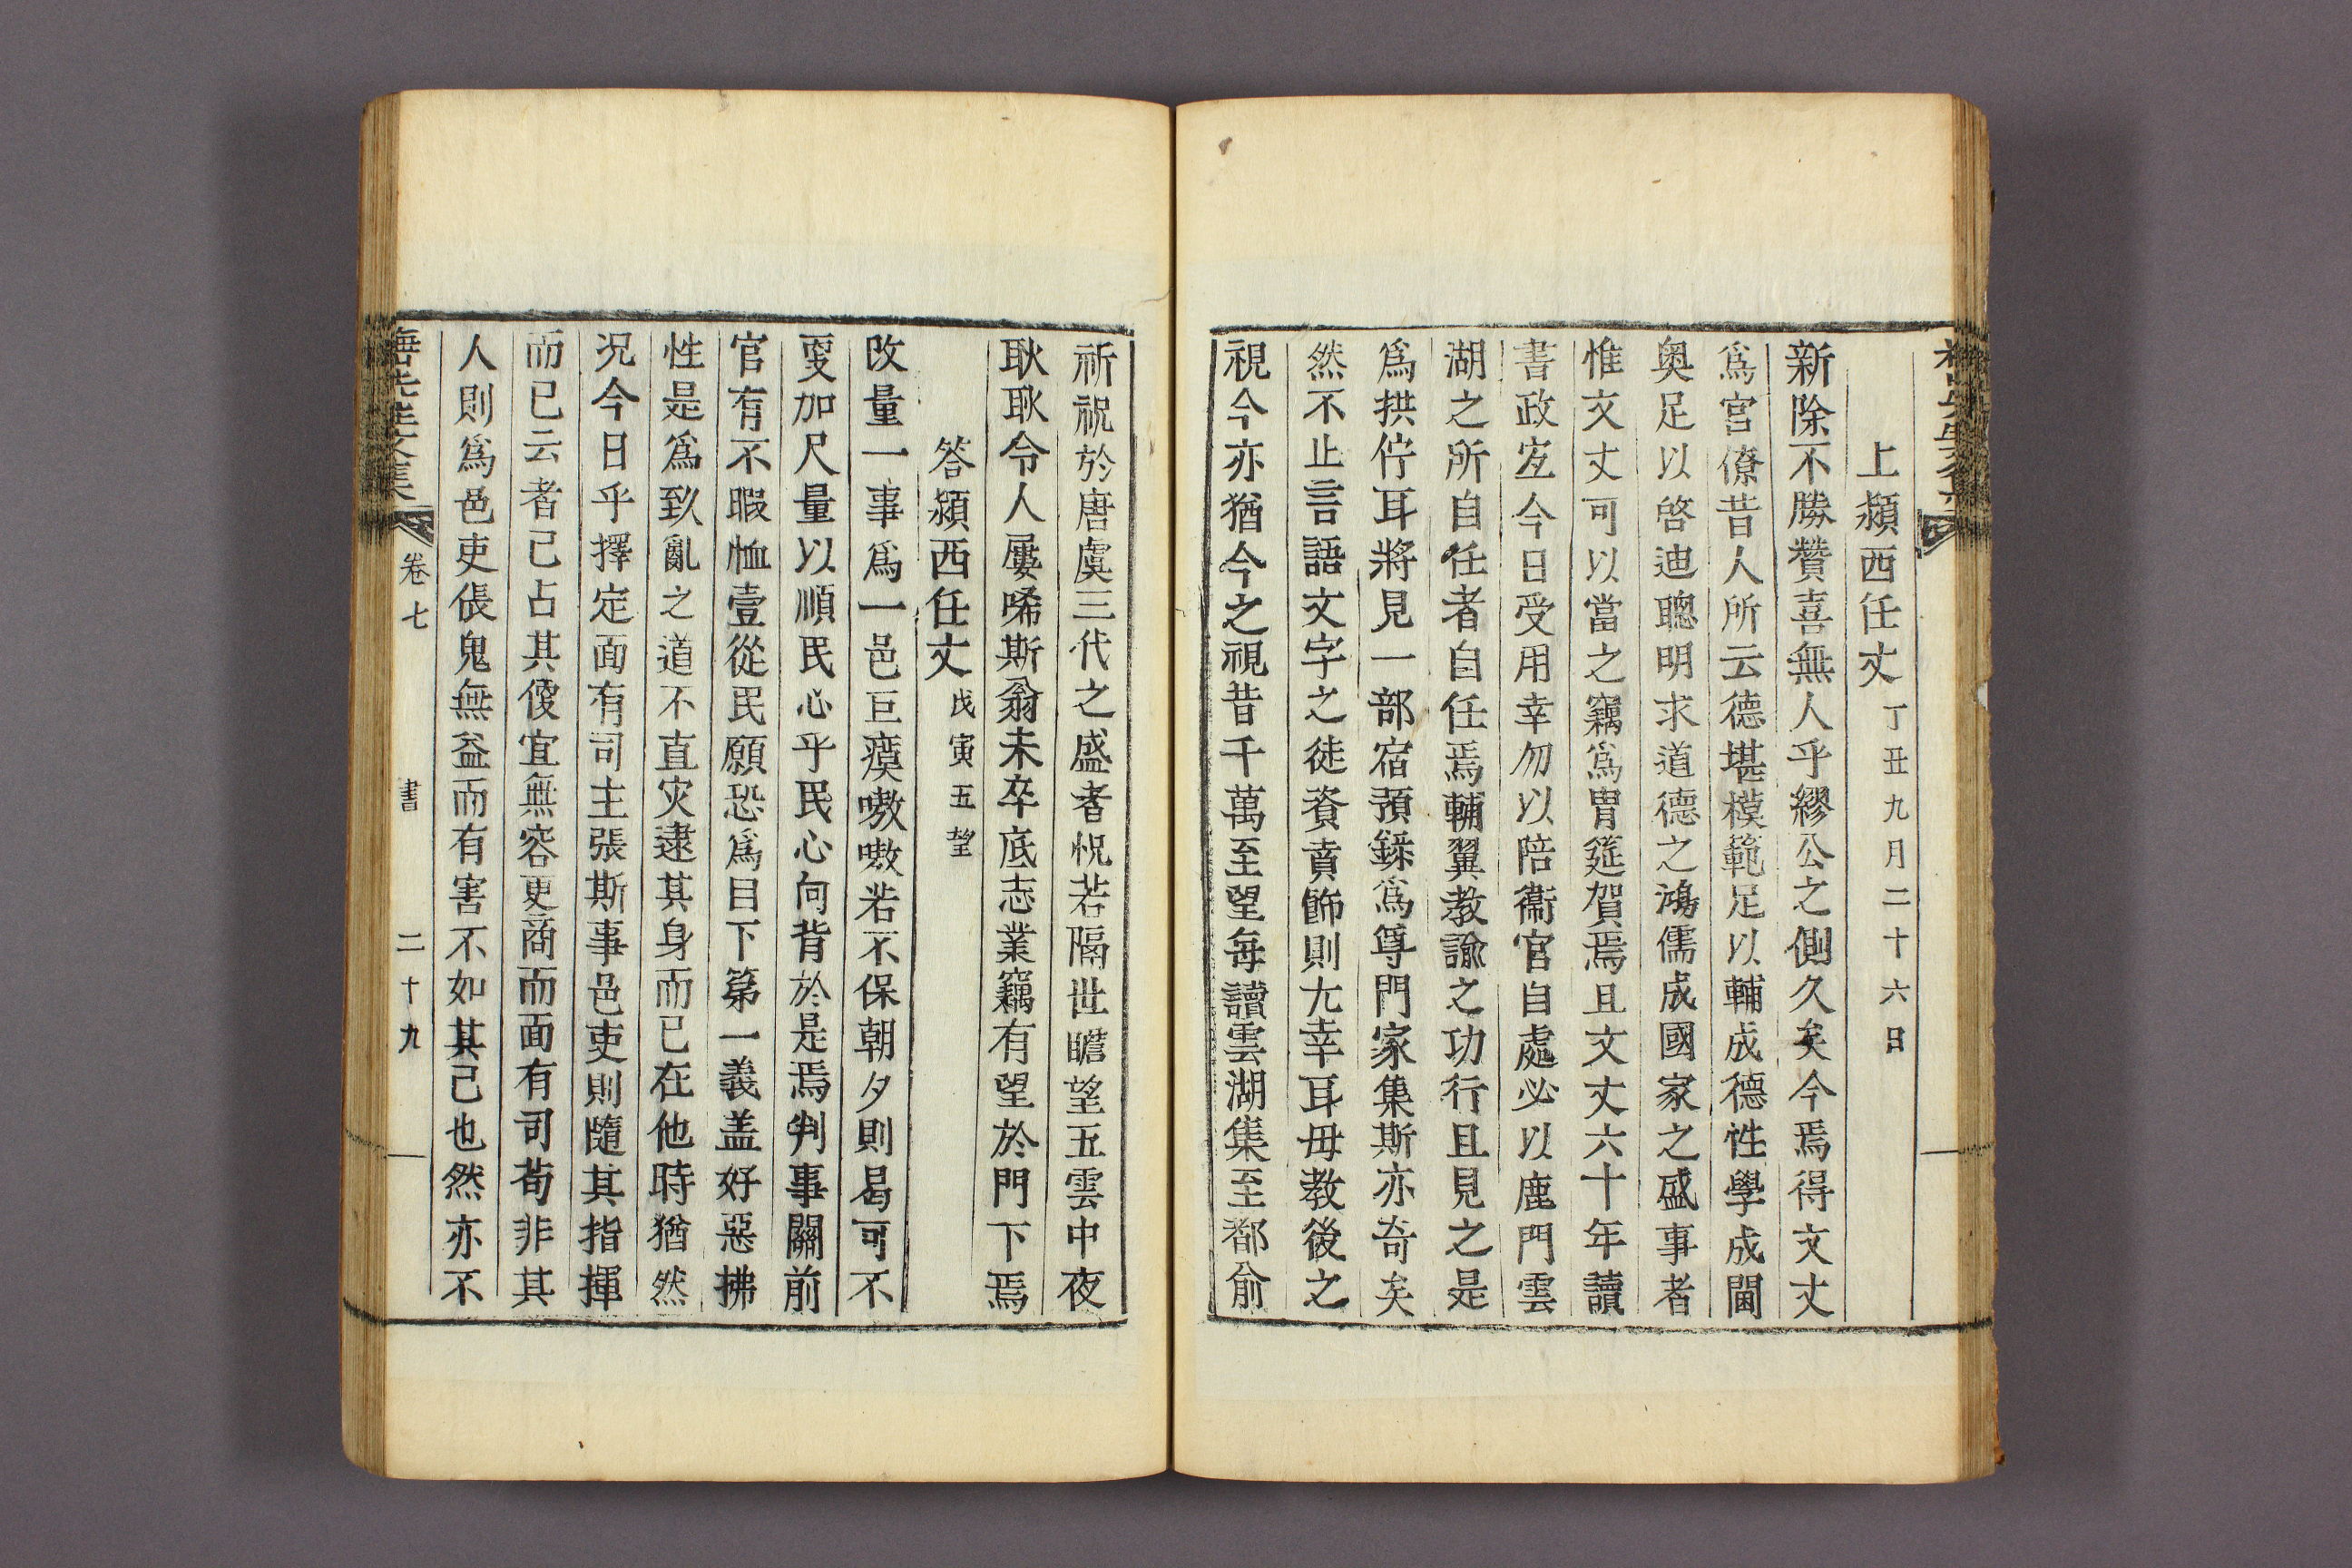 上潁西任丈 丁丑九月二十六日
新除不勝贊喜無人乎繆公之側久矣今焉得文丈
爲宮僚昔人所云德堪模範足以輔成德性學成閫
奧足以啓迪聰明求道德之鴻儒成國家之盛事者
惟文丈可以當之竊爲胄筵賀焉且文丈六十年讀
書政宐今日受用幸勿以陪衞官自處必以鹿門雲
湖之所自任者自任焉輔翼教諭之功行且見之是
爲拱佇耳將見一部宿預錄爲尊門家集斯亦奇矣
然不止言語文字之徒資賁飾則尢幸耳毋教後之
視今亦猶今之視昔千萬至望每讀雲湖集至都俞
祈祝於唐虞三代之盛者怳若隔世瞻望五雲中夜
耿耿令人屢唏斯翁未卒底志業竊有望於門下焉
答潁西任丈 戊寅五望
改量一事爲一邑巨瘼嗷嗷若不保朝夕則曷可不
更加尺量以順民心乎民心向背於是焉判事關前
官有不暇恤壹從民願恐爲目下第一義盖好惡拂
性是爲致亂之道不直灾逮其身而已在他時猶然
況今日乎擇定面有司主張斯事邑吏則隨其指揮
而已云者已占其便宜無容更商而面有司苟非其
人則爲邑吏倀鬼無益而有害不如其已也然亦不
先生文集 卷七 書 二十九